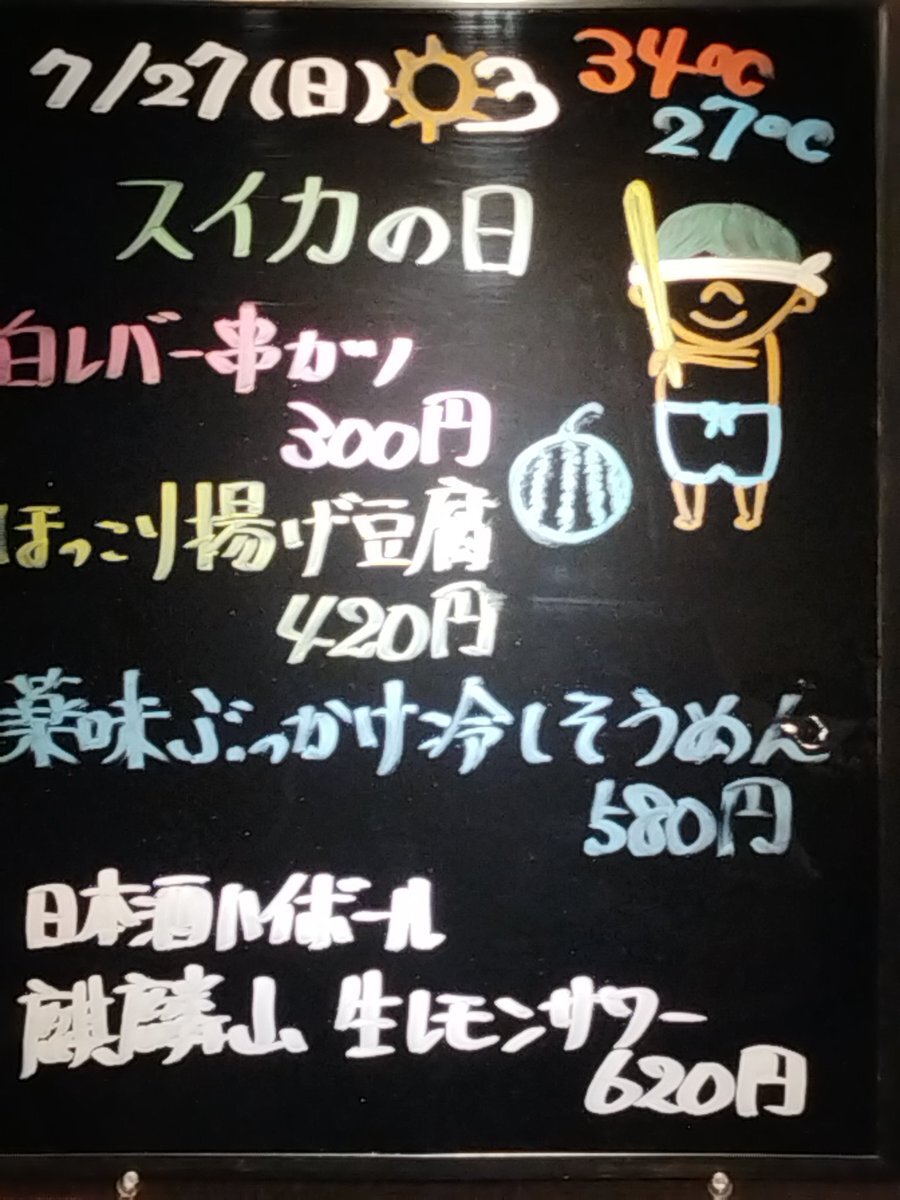 7/27(日)
34℃
27℃
スイカの日
白レバー串カツ
300円
ほっこり揚げ豆腐
420円
薬味ぶっかけ冷しそうめん
580円
日本酒ハイボール
麒麟山 生レモンサワー
620円